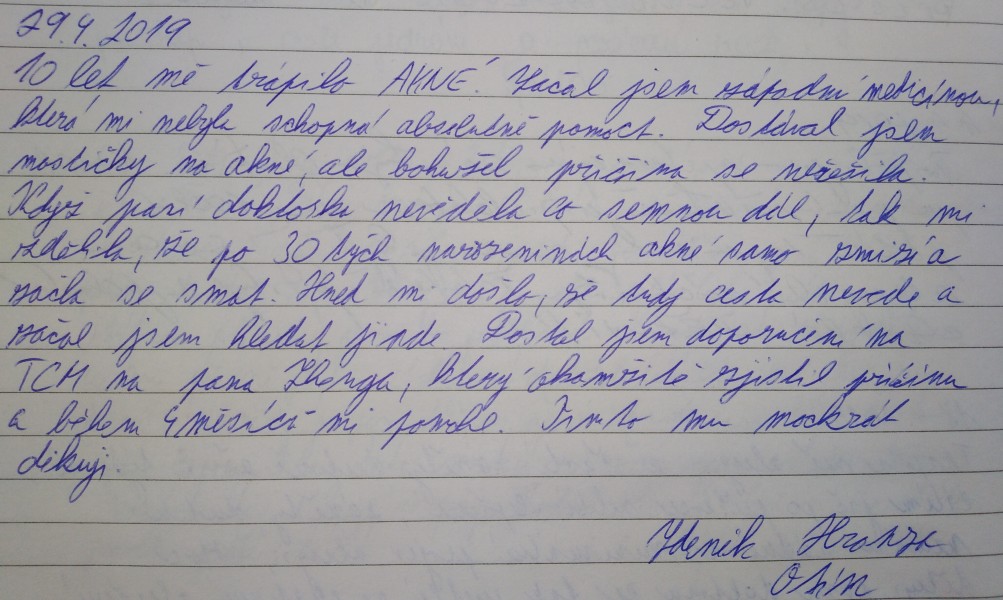 29.4.2019
10 let mě trápilo AKNÉ. Začal jsem západní medicínou,
která mi nebyla schopná absolutně pomoct. Dostával jsem
mastičky na akné, ale bohužel příčina se neřešila.
Když paní doktorka nevěděla co semnou dál, tak mi
sdělila, že po 30 tých narozeninách akné samo zmizí a
začla se smát. Hned mi došlo, že tudy cesta nevede a
začal jsem hledat jinde. Dostal jsem doporučení na
TCM na pana Zhenga, který okamžitě zjistil příčinu
a během 4 měsíců mi pomohl. Tímto mu mockrát
děkuji.
Zdeněk